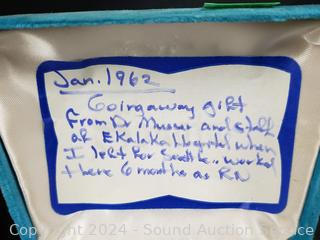 Jan. 1962
Goingaway gift
from Dr Musser and staff
at Ekalaka Hospital when
I left for Seattle.. worked
there 6 months as RN
Copyright 2024 - Sound Auction Service